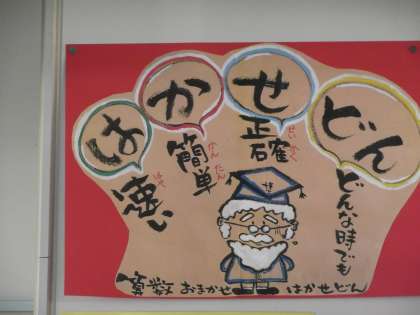 は
速い
はや
か
簡単
かんたん
せ
正確
せいかく
どん
どんな時でも
算数 おまかせ はかせどん